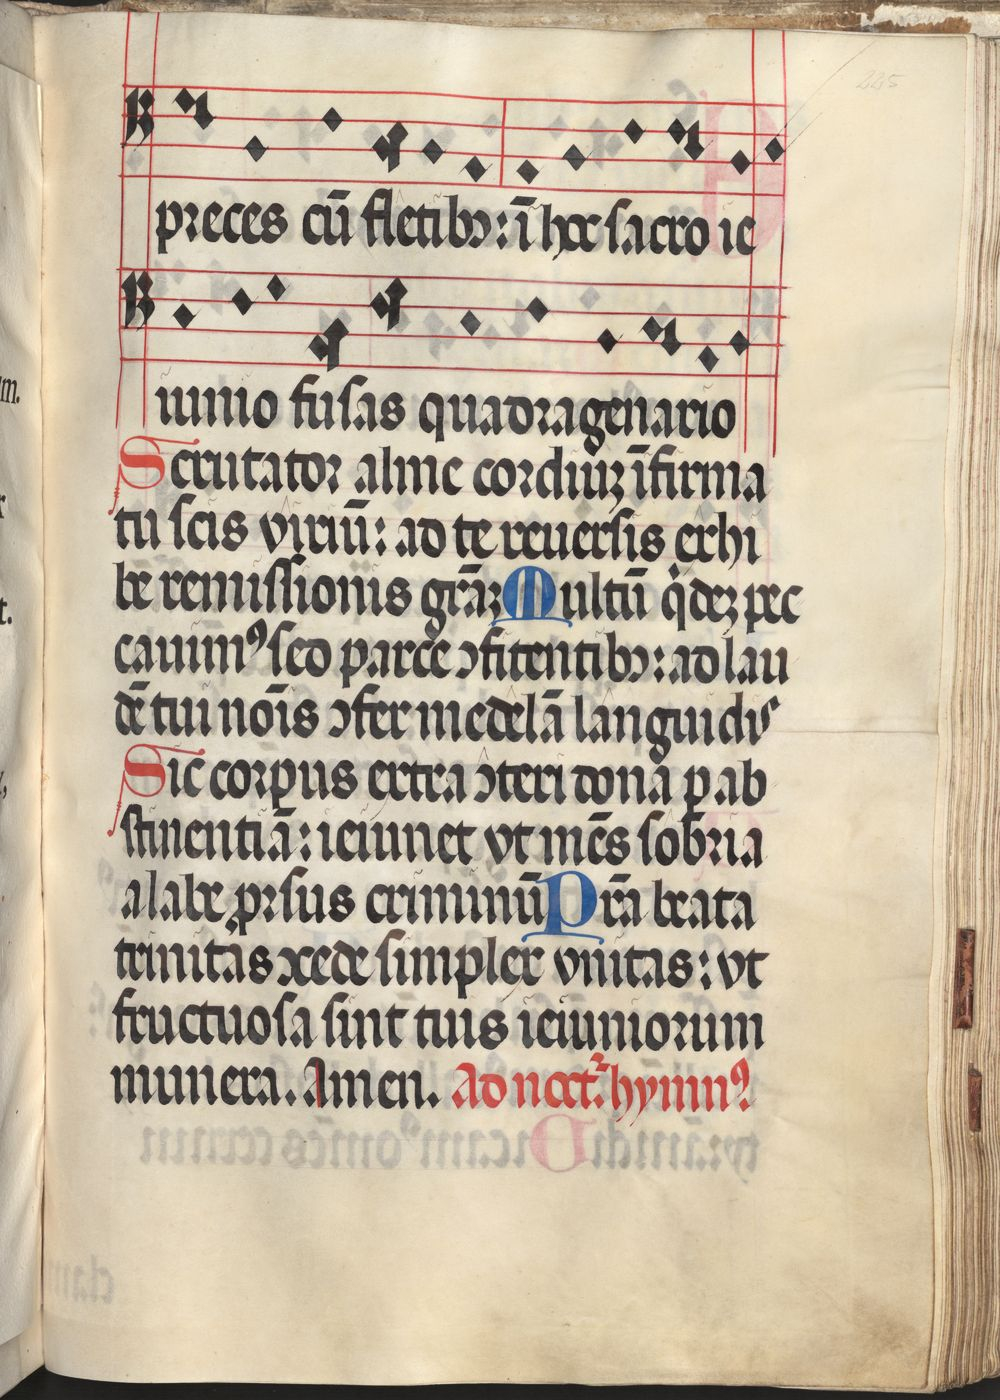 225
preces cū fletibꝫ: ī hoc sacro ie
iunio fusas quadragenario
Scrutator alme cordiuꝫ īfirma
tu scis viriū: ad te reuersis exhi
be remissionis grāꝫ Multū qͥdeꝫ pec
cauimꝰ sed parce ↄfitentibꝫ: ad lau
dē tui nōis ↄfer medelā languidis
Sic corpus extra ↄteri dona ꝑ ab
stinentiā: ieiunet vt mēs sobria
a labe ꝓrsus criminū Prā beata
trinitas ↄcede simplex vnitas: vt
fructuosa sint tuis ieiuniorum
munera. Amen. Ad noct. hymnꝰ.